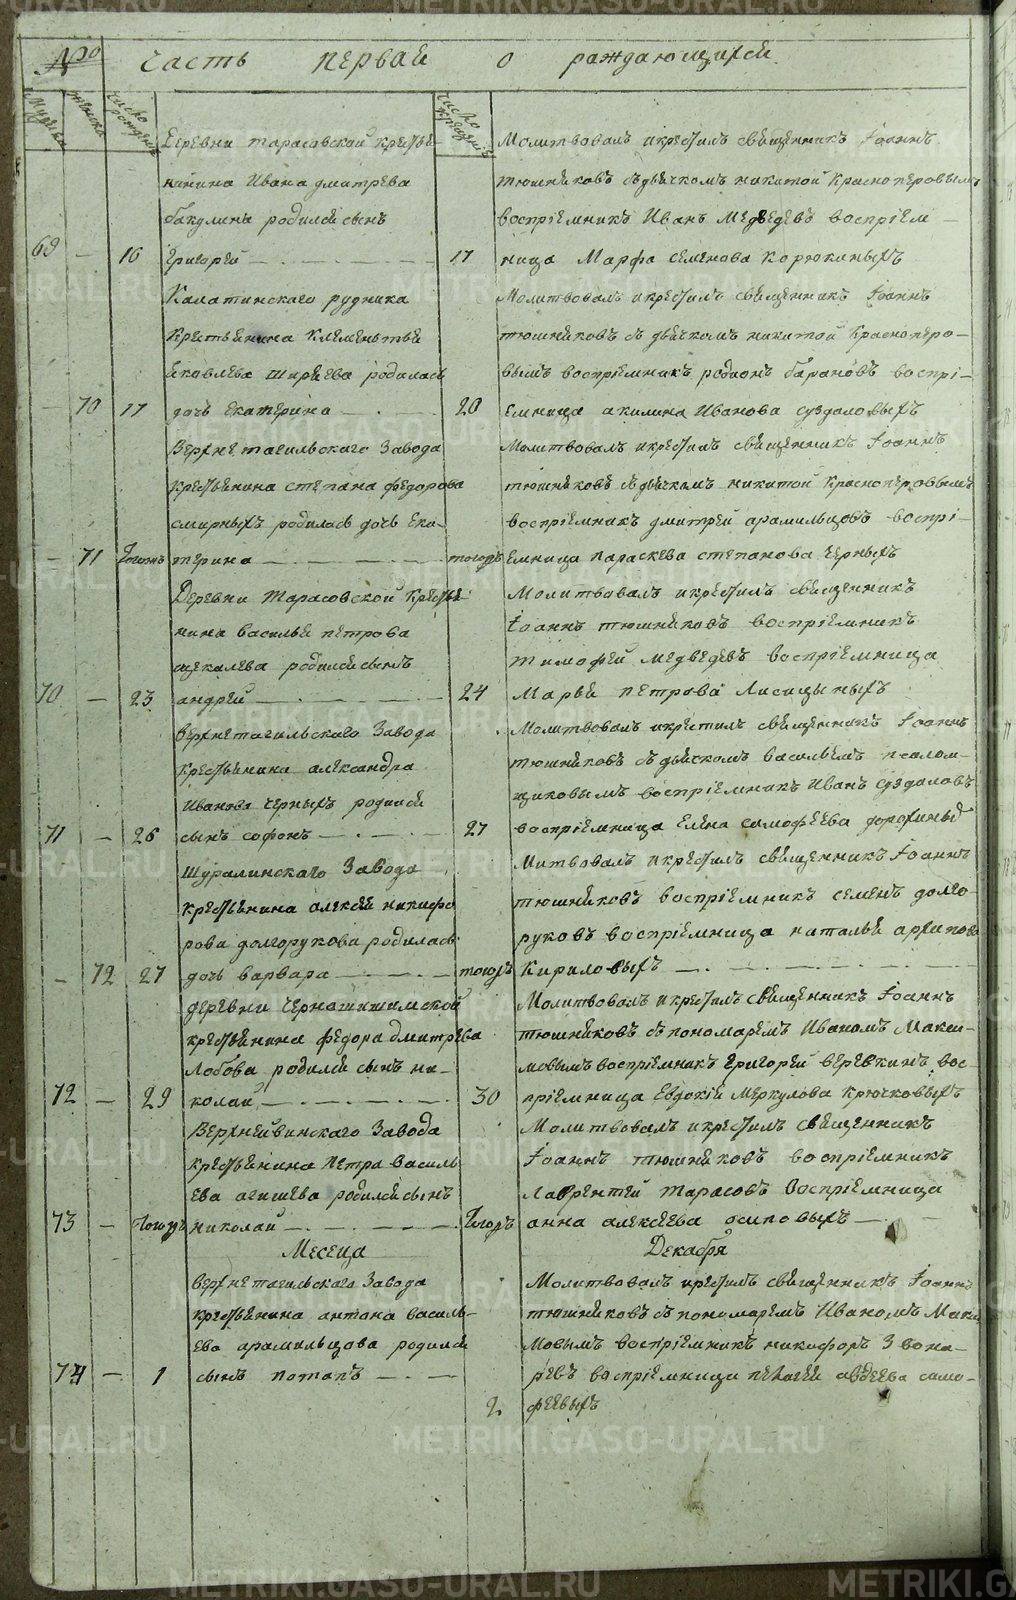 № часть первая о раждающихся
Мужеска
женска
число рождения
число крещения
Деревни тарасовской крестья-
нина Ивана дмитрева
бакулина родился сынъ
69 — 16 Григорей
Молитвовалъ и крестилъ священникъ Iоаннъ
тюшняковъ съ дьячкомъ никитой Красноперовымъ
воспрiемникъ Иванъ Медведевъ воспрiем-
17 ница Марфа семенова корюкиныхъ
Калатинскаго рудника
Крестьянина Клементья
яковлева ширяева родилась
— 70 17 дочь екатерина
Молитвовалъ и крестилъ священникъ Iоаннъ
тюшняковъ съ дьячкомъ никитой Краснопёро-
вымъ воспрiемникъ родионъ барановъ воспрi-
20 емница акилина Иванова суздаловыхъ
Верхнетагильскаго Завода
крестьянина степана федорова
смирныхъ родилась дочь ека-
— 71 тогожъ терина
Молитвовалъ и крестилъ священникъ Iоаннъ
тюшняковъ съ дьячкомъ никитой Красноперовымъ
воспрiемникъ дмитрей арамильцовъ воспрi-
тогожъ емница параскева степанова черныхъ
Деревни Тарасовской крестья-
нина василья петрова
щекалева родился сынъ
70 — 23 андрей
Молитвовалъ и крестилъ священникъ
Iоаннъ тюшняковъ воспрiемникъ
тимофей медведевъ воспрiемница
24 Марья петрова Лисицыныхъ
верхнетагильскаго Завода
крестьянина александра
Иванова черныхъ родился
71 — 26 сынъ софонъ
Молитвовалъ и крестилъ священникъ Iоаннъ
тюшняковъ съ дьячкомъ васильемъ псалом-
щиковымъ воспрiемникъ Иванъ суздаловъ
27 воспрiемница Елена самофеева
Шуралинскаго Завода
крестьянина алексея никифо
рова долгорукова родилась
— 72 27 дочь варвара
Митвовалъ и крестилъ священникъ Iоаннъ
тюшняковъ воспрiемникъ семенъ долго-
руковъ воспрiемница наталья архипова
тогожъ Кириловыхъ
деревни
крестьянина федора дмитрева
Лобова родился сынъ ни-
72 — 29 колай
Молитвовалъ и крестилъ священникъ Iоаннъ
тюшняковъ съ пономаремъ Иваномъ Макси-
мовымъ воспрiемникъ григорей веревкинъ вос-
30 прiемница Евдокiя меркулова крючковыхъ
Верхнейвинскаго Завода
крестьянина Петра василь
ева агишева родился сынъ
73 — тогожъ николай
Молитвовалъ и крестилъ священникъ
Iоаннъ тюшняковъ воспрiемникъ
Лаврентей тарасовъ воспрiемница
анна алексеева осиповыхъ
Месеца Декабря
верхнетагильскаго Завода
крестьянина антона василь-
ева арамильцова родился
74 — 1 сынъ потапъ
Молитвовалъ крестилъ священникъ Iоаннъ
тюшняковъ съ пономаремъ Иваномъ Макси
мовымъ воспрiемникъ никифоръ Звона-
ревъ воспрiемница пелагея авдеева само-
2 феевыхъ
METRIKI.GASO-URAL.RU